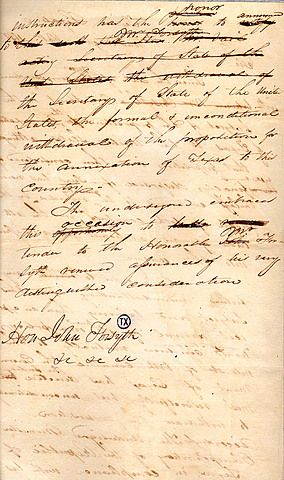 honor
instructions has the honor to announce
to Mr. Forsyth
Secretary of State of the
the withdrawal of
the Secretary of State of the United
States, the formal & unconditional
withdrawal of the proposition for
the annexation of Texas to this
Country.
The undersigned embraces
occasion
the to
under to the Honorable Mr For
syth renewed assurances of his very
distinguished consideration
TX
Hon John Forsyth
&c &c &c